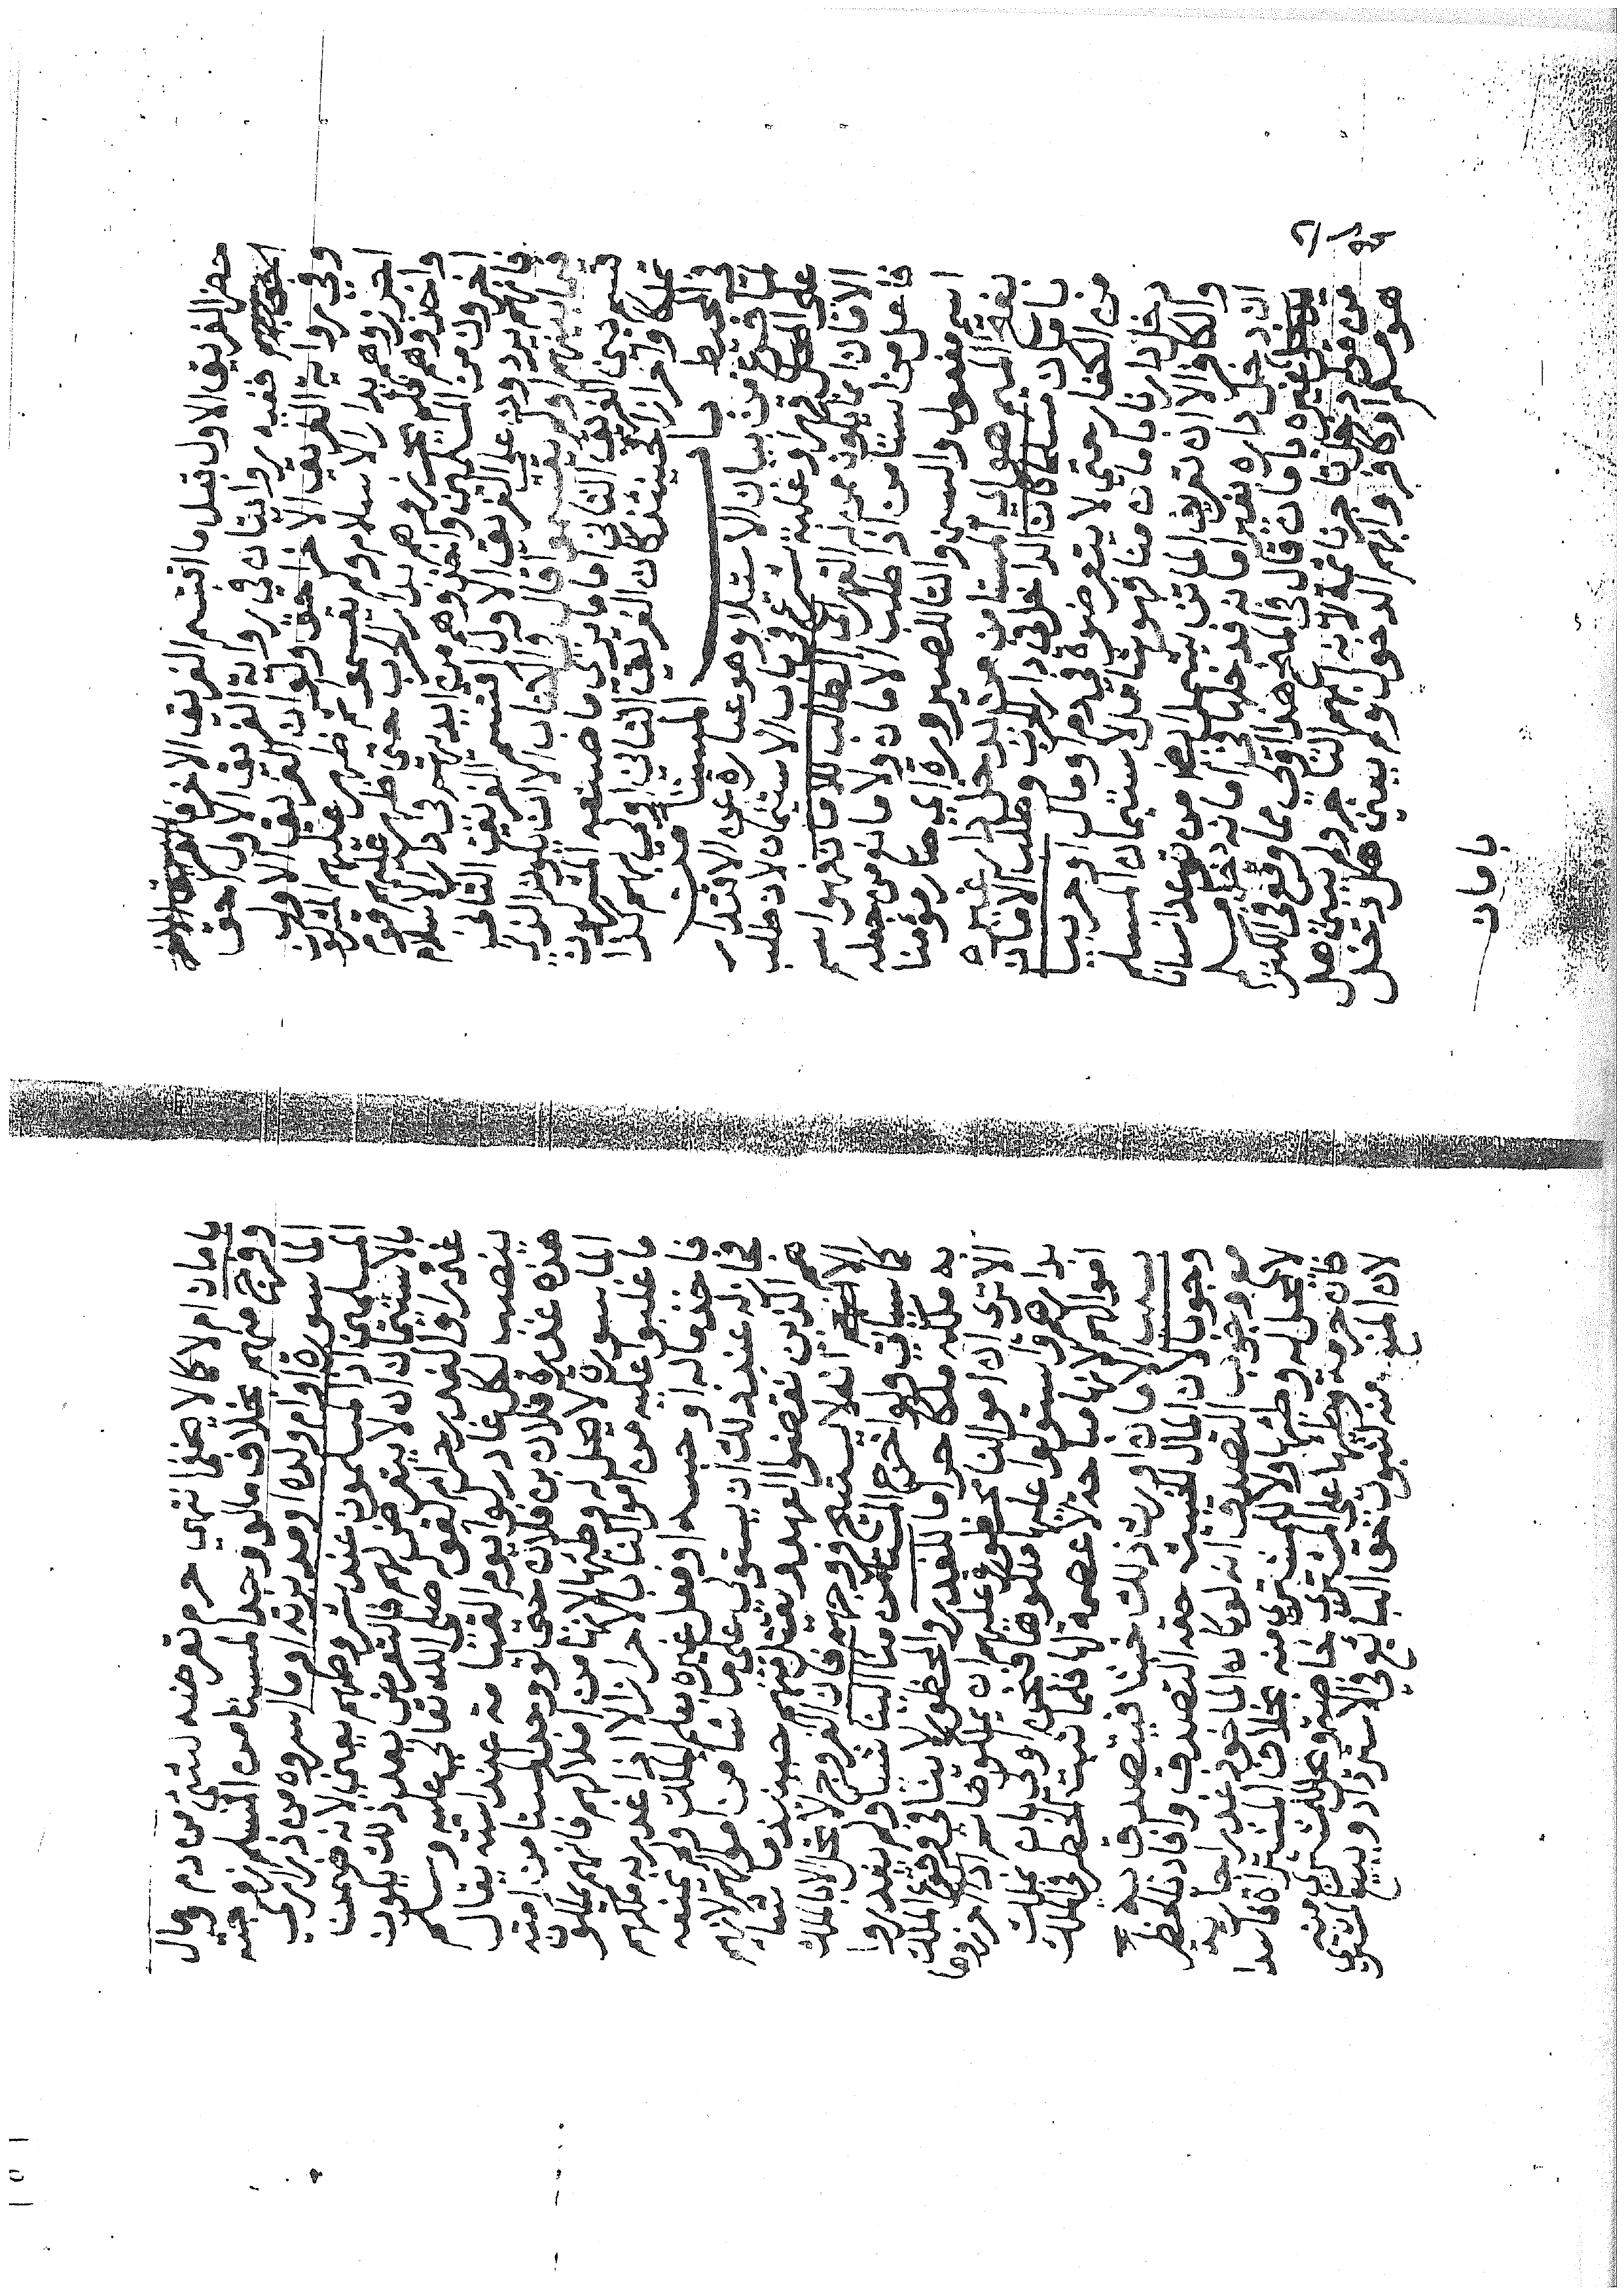 حضر الفريق الاول قبل ما اقتسم الفريق الاخر فالفريق الاول احق
وفي رواية الفريق الاخر احق ولو ان الفريق الاول
احرزوهم بدار الاسلام ولم يقسموهم ثم ظهر عليهم المشركون
واخذوهم فلم يحرزوهم بدار الحرب حتى ظهر عليهم قوم
اخرون من المسلمين واخذوهم من ايديهم في دار الاسلام
فانهم يردون على الفريق الاول اقتسم الفريق الثاني
او لم يقسموا قال في الكتاب الا ان يكون الذي
قسم بين الفريق الثاني اماما يرى ما صنعه المشركون
تملكا واحرازا فحينئذ كان الفريق الثاني اولى بهم كذا
في المحيط باب المستأمن
لما فرغ من بيان الاستيلاء وهو عبارة عن الاقتدار
على المحل قهرا وغلبة شرع في باب الاستئمان لان طلب
الامان انما يكون عن القهر الطالب للامان فهو اسم
فاعل من استأمن اذا طلب الامان ولا مانع من جعله
اسم مفعول والسين والتا للصيرورة اي صار مؤمنا
بفتح الميم هو اي المستأمن من يدخل دار غيره
بامان مسلما كان الداخل في دار الحرب وطلب الامان
من الكفار حتى لا يتعرضوه في دم ومال او حربيا
دخل دارنا بامان منا فهو يتامل لاستئمان المسلم
والكافر الا ان تعريف الماتن يشمل ايضا من توعد انسانا
ان دخل داره بغير امانه فدخلها في امانه دخل مسلم
من غيره بامان قال في المنح هذا اولى مما وقع في الكنز
من قوله دخل تاجرنا ثمة لانه المهم التاجر ولم يبين هل
هو مسلم او كافر وابهم الدخول ولم يبين هل دخل
بامان
بامان ام لا كما لا يخفى انتهى حرم تعرضه لشيء من دم ومال
وفرج منهم بخلاف ما لو وجد المستأمن المسلم زوجته
الماسورة او ام ولده او مدبرته او ما اسروه من ذراري
المسلمين اذ المسلمون عند شروطهم يعني لانه ضمن
بالاستئمان ان لا يتعرض لهم فالتعرض بعد ذلك يكون
غدرا والغدر حرام لقوله صلى الله تعالى عليه وسلم
ينصب لكل غادر لواء يوم القيامة عند استه يقال
هذه غدرة فلان بن فلان حتى لو وجد المستأمن امته
الماسورة لا يحل له وطئها لانها من املاكهم فانهم يملكون
ما غلبوا عليه من اموالنا بالاحراز الا اذا غدر به ملكهم
فاخذ ماله او حبسه او فعل غيره بعلم الملك ولم يمنعه
فجاز له عند ذلك ان يستولي على ما شا من اموالهم لانهم
هم الذين نقضوا العهد ويقتل منهم حينئذ ما شا
الا انه لا يستبيح فروجهم فان الفروج لا تحل الا بالملك
كما سياتي ولو اخرج المستأمن منا الينا شيئا ولم يغدروا
به ملكه ملكا حراما للغدر والحظر لا ينافي وقوع الملك
الا ترى ان اموالنا محظورة عليهم ان يملكوها اذا احرزوها
بدارهم واستولوا عليها ملكوها فنحن اولى بان نملك
اموالهم لانها مباحة لا عصمة لها فلما ثبت الحظر في الملك
بسبب الامان اورث ذلك خبثا فيتصدق به
وجوبا لان المال الخبيث حقه التصدق وافاد بلفظ
مع وجوب التصدق انه لو كان الماخوذ غدرا جارية
لا يحل له وطؤها ولا للمشتري منه بخلاف المشتراة فاسدا
فان حرمة وطئها على المشتري خاصة ويحل للمشتري منه
لان المنع منه لثبوت حق البائع في الاسترداد وببيع المشتري